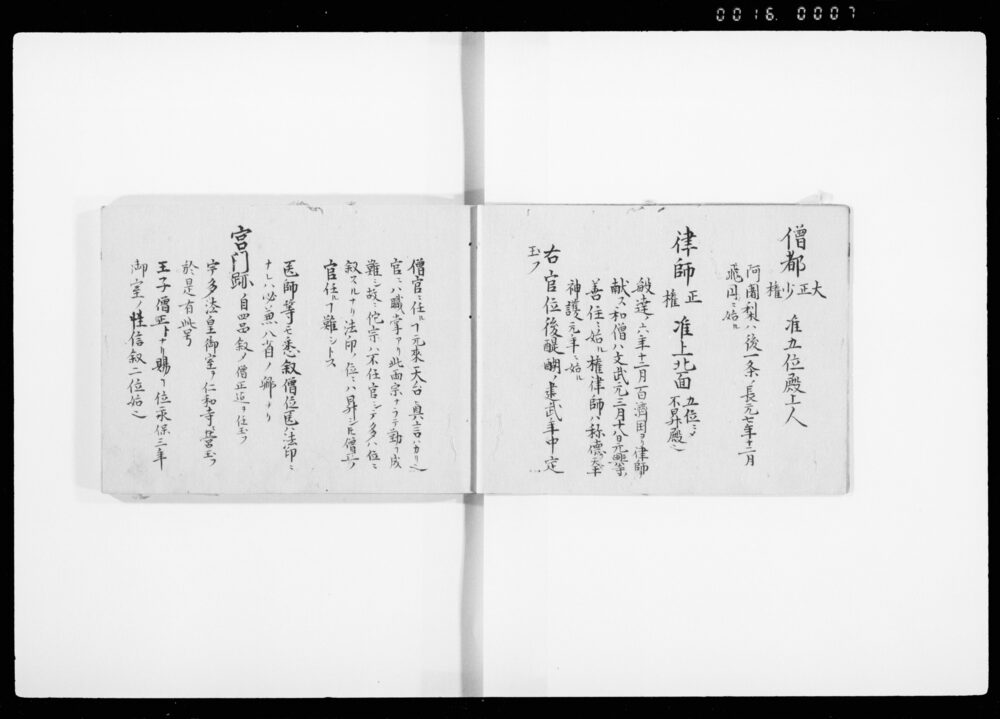 0016 0007
僧都 大正少権 准五位殿上人
阿闍梨ハ後一条ノ長元七年十二月
飛円ニ始ル
律師 正権 准上北面 五位ニシ不昇殿也
敏達ノ六年十二月百済国ヨリ律師ヲ
献ス和僧ハ文武元三月十八日元興寺ノ
善任ニ始ル権律師ハ称徳天平
神護元年ニ始ル
右官位後醍醐ノ建武年中定
玉フ
僧官ニ任ルフ元来天台真言ハカリ也
官ニハ職掌アリ此両宗ナラテ勤フ成
難シ故ニ佗宗ハ不任官シテ多ハ位ニ
叙スルナリ法印ノ位ニハ昇シ𪜈僧正ノ
官任ルフ難シトス
医師等モ悉叙僧位医ハ法印ニ
ナレハ必兼八省ノ卿ナリ
宮門跡 自四品叙ノ僧正迄ヲ任玉フ
宇多法皇御室ヲ仁和寺ニ営玉フ
於是有此号
王子僧正トナリ賜フ位永保三年
御室ノ性信叙二位始也